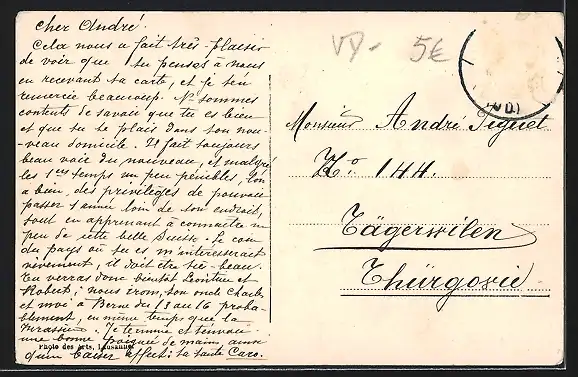 cher André.
Cela nous a fait très-plaisir
de voir que tu penses à nous
en recevant ta carte, et je t'en
remercie beaucoup. Ns sommes
contents de savoir que tu es bien
et que tu te plais dans ton nou-
-veau domicile. Il fait toujours
beau voir du nouveau, et malgré
les 1ers temps un peu pénibles, l'on
a bien des privilèges de pouvoir
passer 1 année loin de son endroit,
tout en apprenant à connaître un
peu de cette belle Suisse. Je
du pays où tu es m'intéresserait
vivement, il doit être très-beau.
Tu verras donc bientôt Léontine et
Robert; nous irons, ton oncle Charles
et moi à Berne du 13 au 16 proba-
blement, en même temps que la
Jurassien. Je termine et t'envoie
une bonne poignée de main, ainsi
qu'un baiser affect: ta tante Caro.
Photo des Arts, Lausanne
VD-
5€
(VD.)
Monsieur André Piguet
No 144.
Tägerwilen
Thurgovie